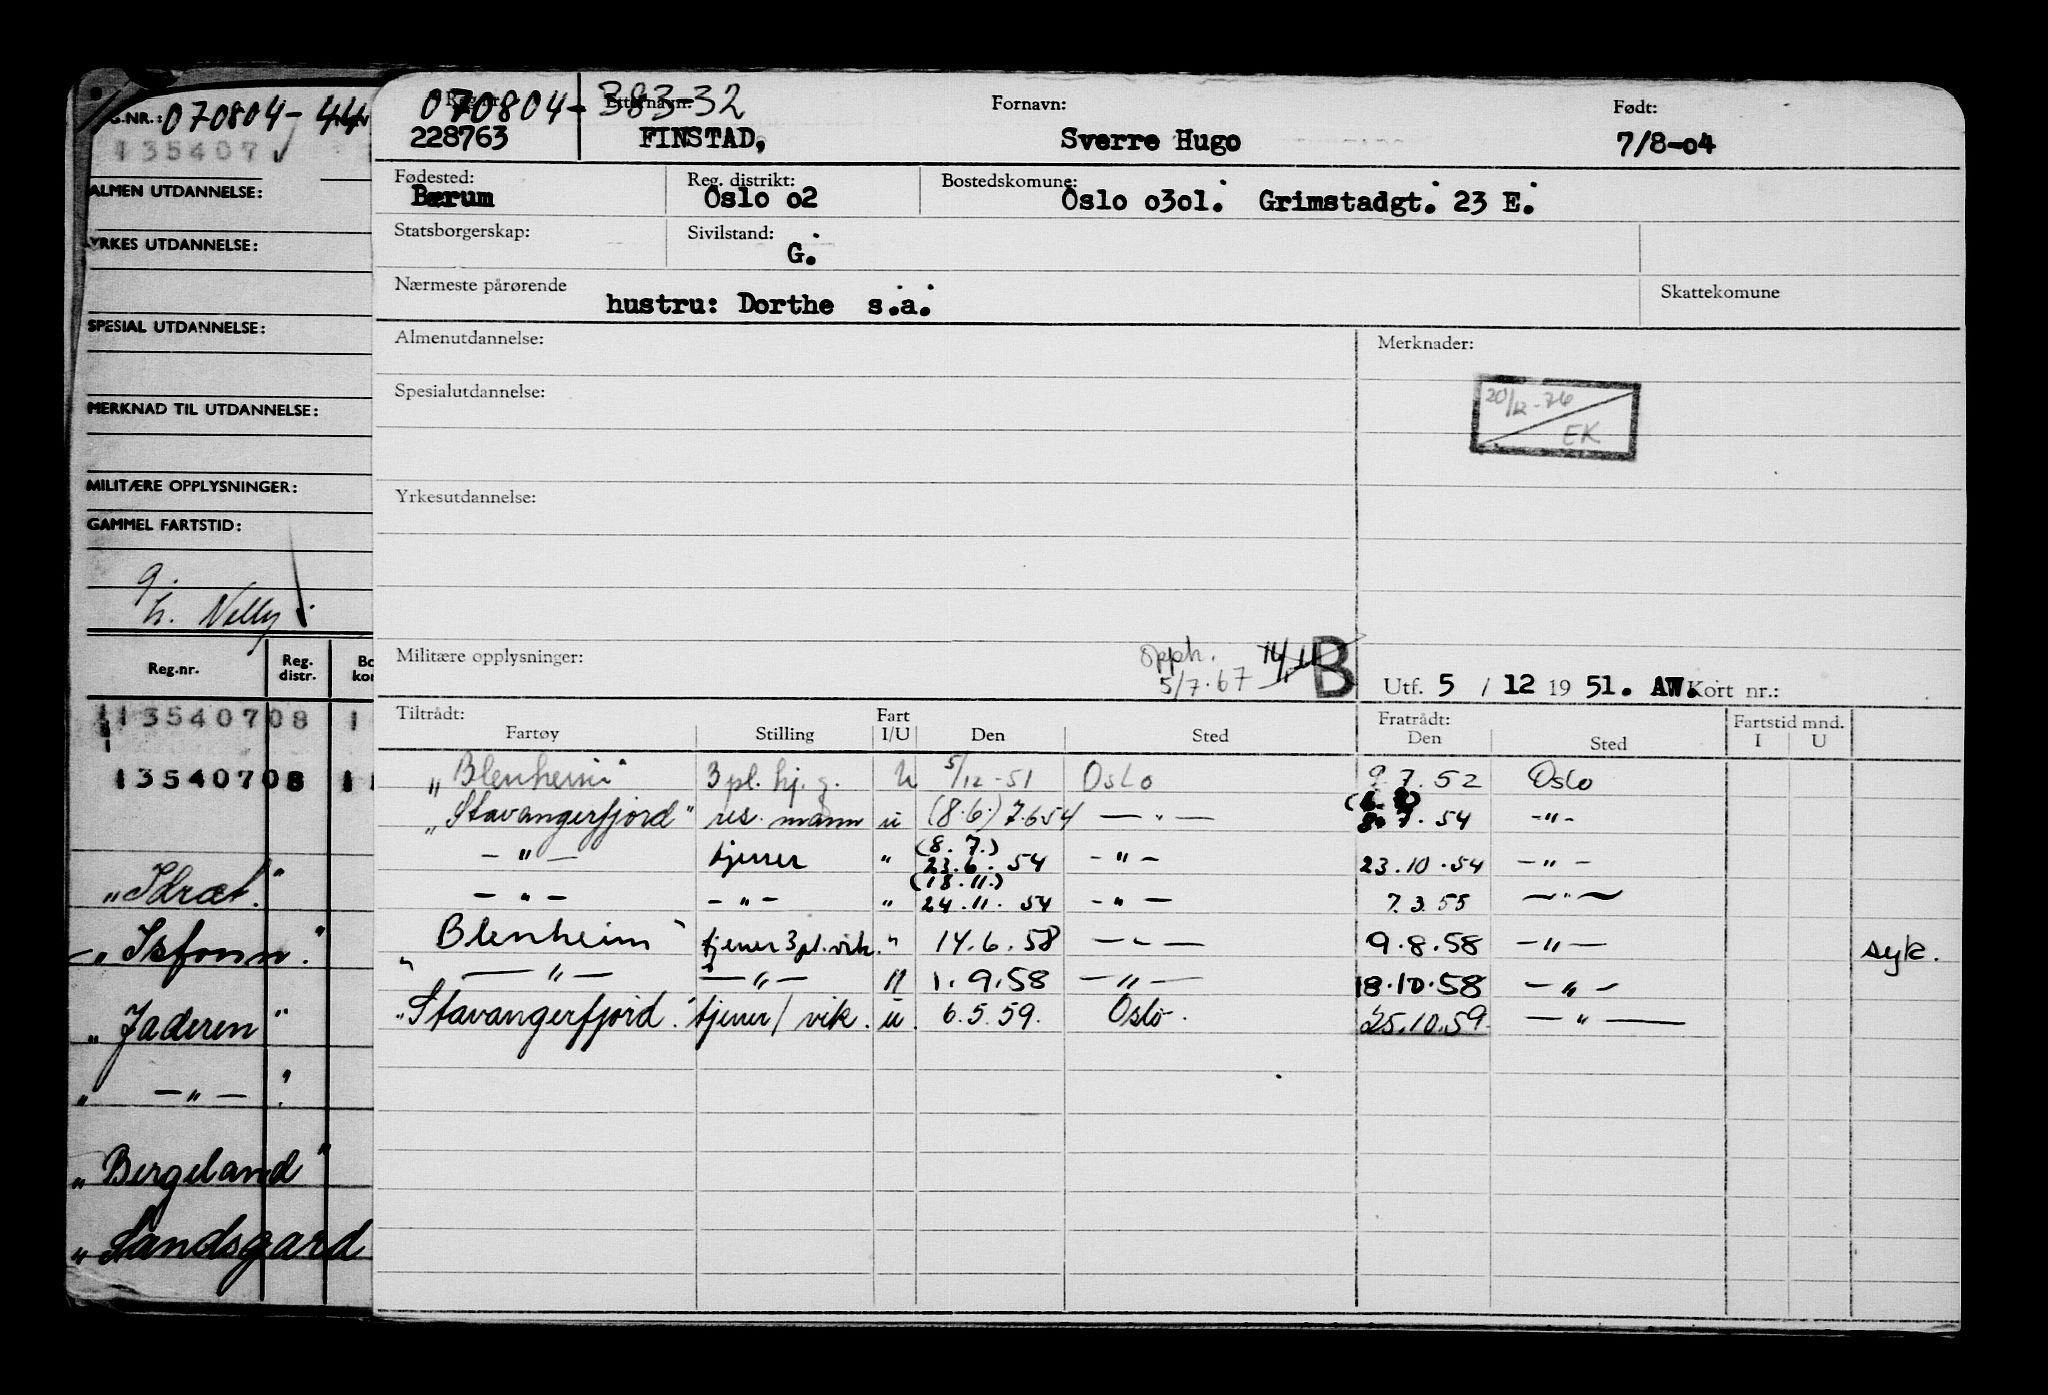 G.NR.: 070804-44
135407 ✓
ALMEN UTDANNELSE:
YRKES UTDANNELSE:
SPESIAL UTDANNELSE:
MERKNAD TIL UTDANNELSE:
MILITÆRE OPPLYSNINGER:
GAMMEL FARTSTID:
g.
h. Nelly
Reg.nr. Reg. distr.
13540708 1
13540708 11
„Idræt."
„Isfonn."
„Jaderen"
„ —„— "
„Bergeland"
„Sandsgard
Reg.nr. Etternavn: Fornavn: Født:
070804-383-32
228763 FINSTAD, Sverre Hugo 7/8-04
Fødested: Reg. distrikt: Bostedskomune:
Bærum Oslo o2 Oslo o3o1. Grimstadgt. 23 E.
Statsborgerskap: Sivilstand:
G.
Nærmeste pårørende Skattekomune
hustru: Dorthe s.a.
Almenutdannelse: Merknader:
20/12-76
EK
Spesialutdannelse:
Yrkesutdannelse:
Militære opplysninger: Opph. 5/7.67 B Utf. 5 / 12 19 51. AW. Kort nr.:
Tiltrådt: Fart Fratrådt: Fartstid mnd.
Fartøy Stilling I/U Den Sted Den Sted I U
„Blenheim" 3 pl. hj. g. U 5/12-51 Oslo 9.7.52 Oslo
„Stavangerfjord" res. mann u (8.6.) 7.6 54 —"— 8.7.54 -"-
—"— tjener " (8.7.) 23.6.54 -"- 23.10.54 —"—
—"— —"— " (18.11.) 24.11.54 -"— 7.3.55 —"—
„Blenheim" tjener 3pl. vik. " 14.6.58 —"— 9.8.58 —"— syk.
—"— —"— " 1.9.58 —"— 18.10.58 —"—
„Stavangerfjord." tjener/ vik. u. 6.5.59. Oslo. 25.10.59. —"—